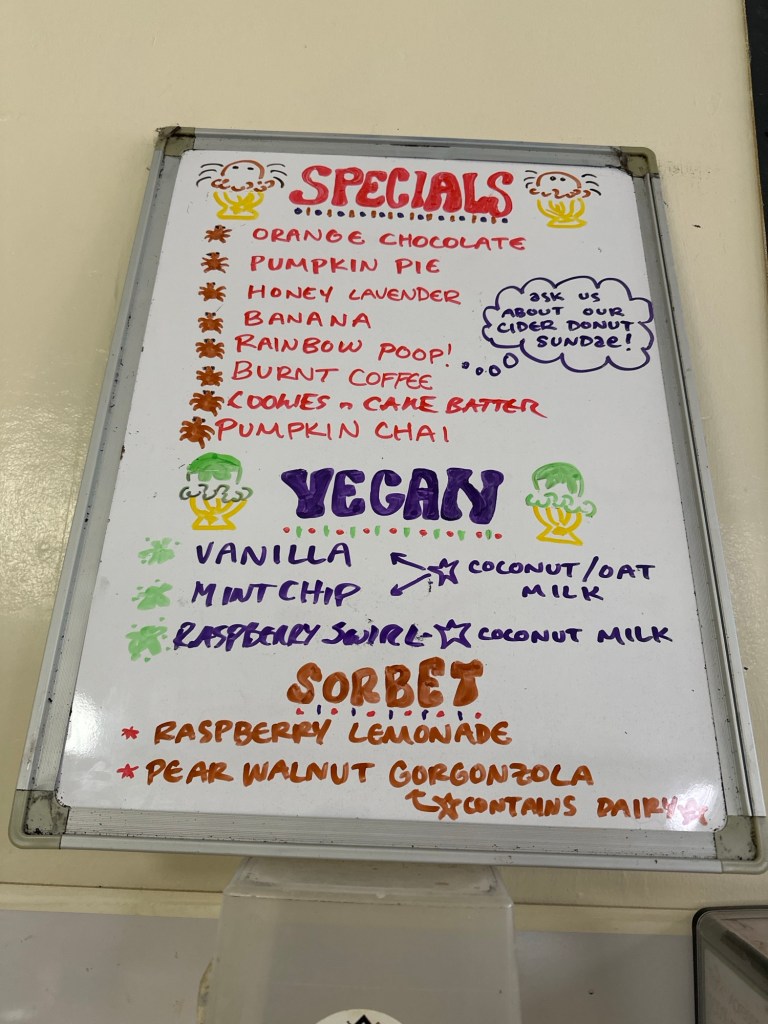 SPECIALS
ORANGE CHOCOLATE
PUMPKIN PIE
HONEY LAVENDER
BANANA
RAINBOW POOP!
BURNT COFFEE
COOKIES n CAKE BATTER
PUMPKIN CHAI
ask us
ABOUT OUR
CIDER DONUT
SUNDae!
VEGAN
VANILLA
MINT CHIP
COCONUT/OAT
MILK
RASPBERRY SWIRL - COCONUT MILK
SORBET
* RASPBERRY LEMONADE
* PEAR WALNUT GORGONZOLA
CONTAINS DAIRY